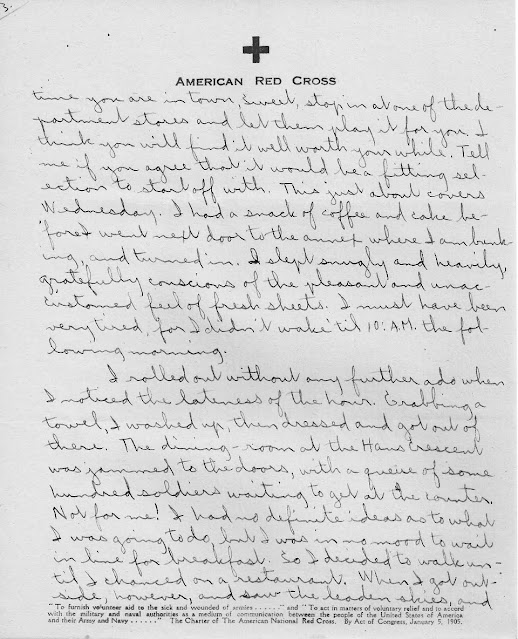 3.
AMERICAN RED CROSS
time you are in town, Sweet, stop in at one of the de-
partment stores and let them play it for you. I
think you will find it well worth your while. Tell
me if you agree that it would be a fitting sel-
ection to start off with. This just about covers
Wednesday. I had a snack of coffee and cake be-
fore I went next door to the annex, where I am bunk-
ing, and turned in. I slept snugly and heavily,
gratefully conscious of the pleasant and unac-
customed feel of fresh sheets. I must have been
very tired, for I didn't wake 'til 10: A.M. the fol-
lowing morning.
I rolled out without any further ado when
I noticed the lateness of the hour. Grabbing a
towel, I washed up, then dressed and got out of
there. The dining-room at the Hans Crescent
was jammed to the doors, with a queue of some
hundred soldiers waiting to get at the counter.
Not for me! I had no definite ideas as to what
I was going to do, but I was in no mood to wait
in line for breakfast. So I decided to walk un-
til I chanced on a restaurant. When I got out-
side, however, and saw the leaden skies, and
"To furnish volunteer aid to the sick and wounded of armies . . . . . ." and "To act in matters of voluntary relief and to accord
with the military and naval authorities as a medium of communication between the people of the United States of America
and their Army and Navy . . . . . ." The Charter of The American National Red Cross. By Act of Congress, January 5, 1905.